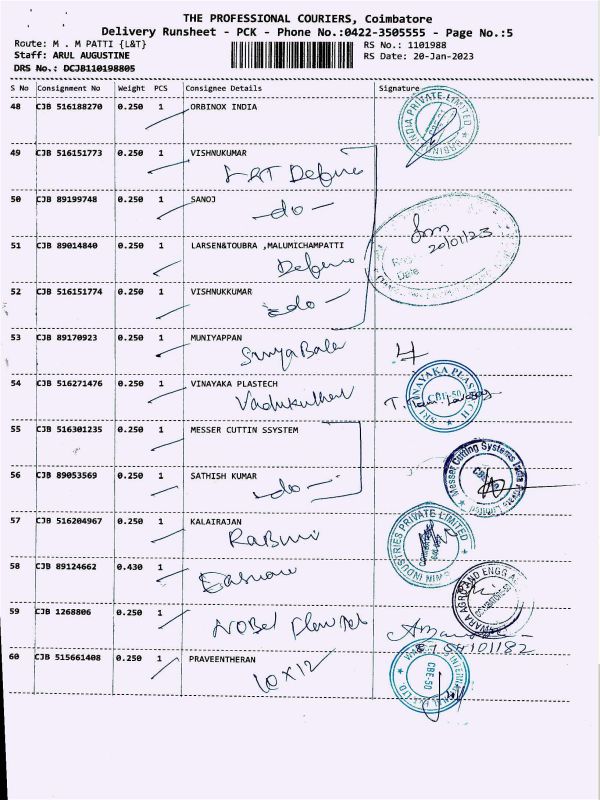 THE PROFESSIONAL COURIERS, Coimbatore
Delivery Runsheet - PCK - Phone No.:0422-3505555 - Page No.:5
Route: M . M PATTI {L&T} RS No.: 1101988
Staff: ARUL AUGUSTINE RS Date: 20-Jan-2023
DRS No.: DCJB110198805
S No Consignment No Weight PCS Consignee Details Signature
48 CJB 516188270 0.250 1 ORBINOX INDIA
INDIA PRIVATE LIMITED
49 CJB 516151773 0.250 1 VISHNUKUMAR
50 CJB 89199748 0.250 1 SANOJ
-do-
51 CJB 89014840 0.250 1 LARSEN&TOUBRA ,MALUMICHAMPATTI
20/01/23
Date
52 CJB 516151774 0.250 1 VISHNUKKUMAR
-do-
53 CJB 89170923 0.250 1 MUNIYAPPAN
SuryaBala
54 CJB 516271476 0.250 1 VINAYAKA PLASTECH
SRI VINAYAKA PLASTECH
55 CJB 516301235 0.250 1 MESSER CUTTIN SSYSTEM
Messer Cutting Systems India Private Limited
56 CJB 89053569 0.250 1 SATHISH KUMAR
-do-
57 CJB 516204967 0.250 1 KALAIRAJAN
INDUSTRIES PRIVATE LIMITED
58 CJB 89124662 0.430 1
AGRO AND ENGG
59 CJB 1268806 0.250 1
60 CJB 515661408 0.250 1 PRAVEENTHERAN
10x12
CBE-50